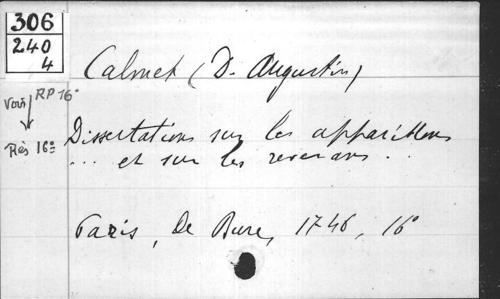 306
240
4
Calmet (D. Augustin)
Voir RP 16°
Rés 16°
Dissertations sur les apparitions
... et sur les revenans ...
Paris, De Bure, 1746, 16°